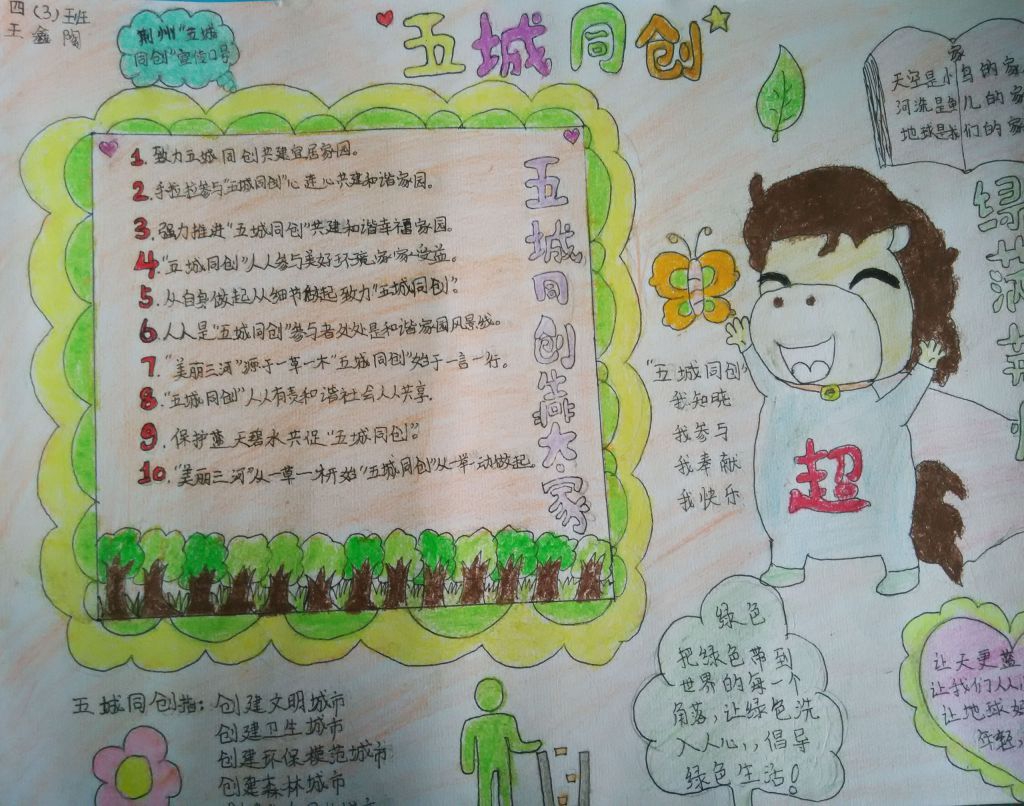 四(3)班
王鑫陶
荆州"五城
同创"宣传口号
五城同创
家
天空是小鸟的家
河流是鱼儿的家
地球是我们的家
1.致力五城同创共建宜居家园。
2.手拉手参与"五城同创"心连心共建和谐家园。
3.强力推进"五城同创"共建和谐幸福家园。
4."五城同创"人人参与美好环境家家受益。
5.从自身做起从细节做起致力"五城同创"。
6.人人是"五城同创"参与者处处是和谐家园风景线。
7."美丽三河"源于一草一木"五城同创"始于一言一行。
8."五城同创"人人有责和谐社会人人共享。
9.保护蓝天碧水共促"五城同创"。
10."美丽三河"从一草一木开始"五城同创"从一举一动做起。
五城同创靠大家
"五城同创"
我知晓
我参与
我奉献
我快乐
超
绿色
把绿色带到
世界的每一个
角落,让绿色洗
入人心,,倡导
绿色生活!
让天更蓝
让我们人
让地球
年轻
五城同创指:创建文明城市
创建卫生城市
创建环保模范城市
创建森林城市